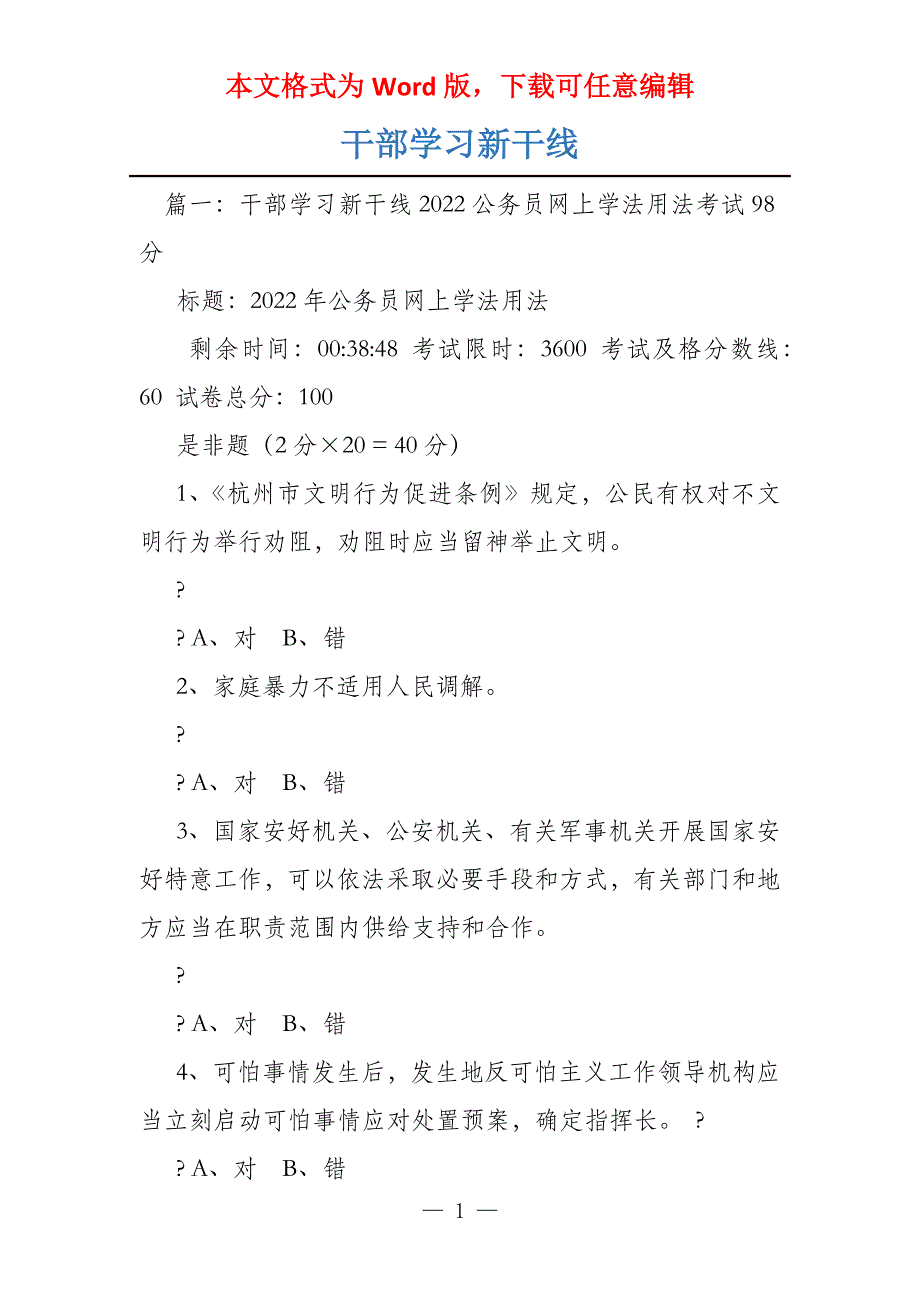 本文格式为 Word 版，下载可任意编辑
干部学习新干线
篇一：干部学习新干线 2022 公务员网上学法用法考试 98
分
标题：2022 年公务员网上学法用法
剩余时间：00:38:48 考试限时：3600 考试及格分数线：
60 试卷总分：100
是非题（2 分×20 = 40 分）
1、《杭州市文明行为促进条例》规定，公民有权对不文
明行为举行劝阻，劝阻时应当留神举止文明。
?
? A、对 B、错
2、家庭暴力不适用人民调解。
?
? A、对 B、错
3、国家安好机关、公安机关、有关军事机关开展国家安
好特意工作，可以依法采取必要手段和方式，有关部门和地
方应当在职责范围内供给支持和合作。
?
? A、对 B、错
4、可怕事情发生后，发生地反可怕主义工作领导机构应
当立刻启动可怕事情应对处置预案，确定指挥长。 ?
? A、对 B、错
— 1 —